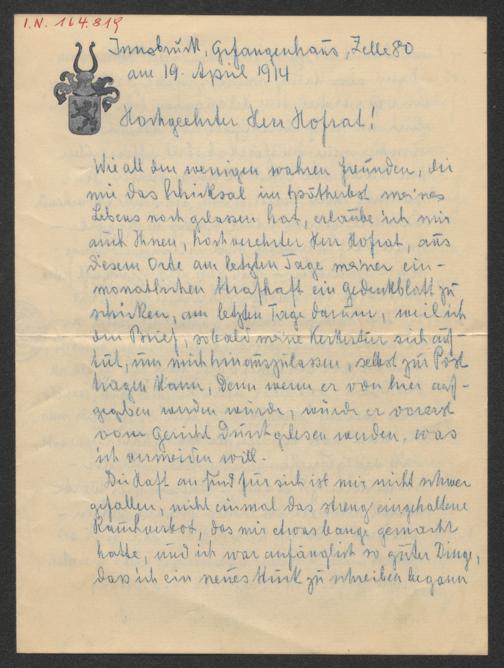 I.N. 164.819
Innsbruck, Gefangenhaus, Zelle 80
am 19. April 1914
Hochgeehrter Herr Hofrat!
Wie all den wenigen wahren Freunden, die
mir das Schicksal im Spätherbst meines
Lebens noch gelassen hat, erlaube ich mir
auch Ihnen, hochverehrter Herr Hofrat, aus
diesem Orte am letzten Tage meiner ein-
monatlichen Strafhaft ein Gedenkblatt zu
schicken, am letzten Tage darum, weil ich
den Brief, sobald meine Kerkertür sich auf-
tut, um mich hinauszulassen, selbst zur Post
tragen kann, denn wenn er von hier auf-
gegeben werden würde, würde er vorerst
vom Gericht durchgelesen werden, was
ich vermeiden will.
Die Haft an und für sich ist mir nicht schwer
gefallen, nicht einmal das streng eingehaltene
Rauchverbot, das mir etwas bange gemacht
hatte, und ich war anfänglich so guter Dinge,
dass ich ein neues Stück zu schreiben begann